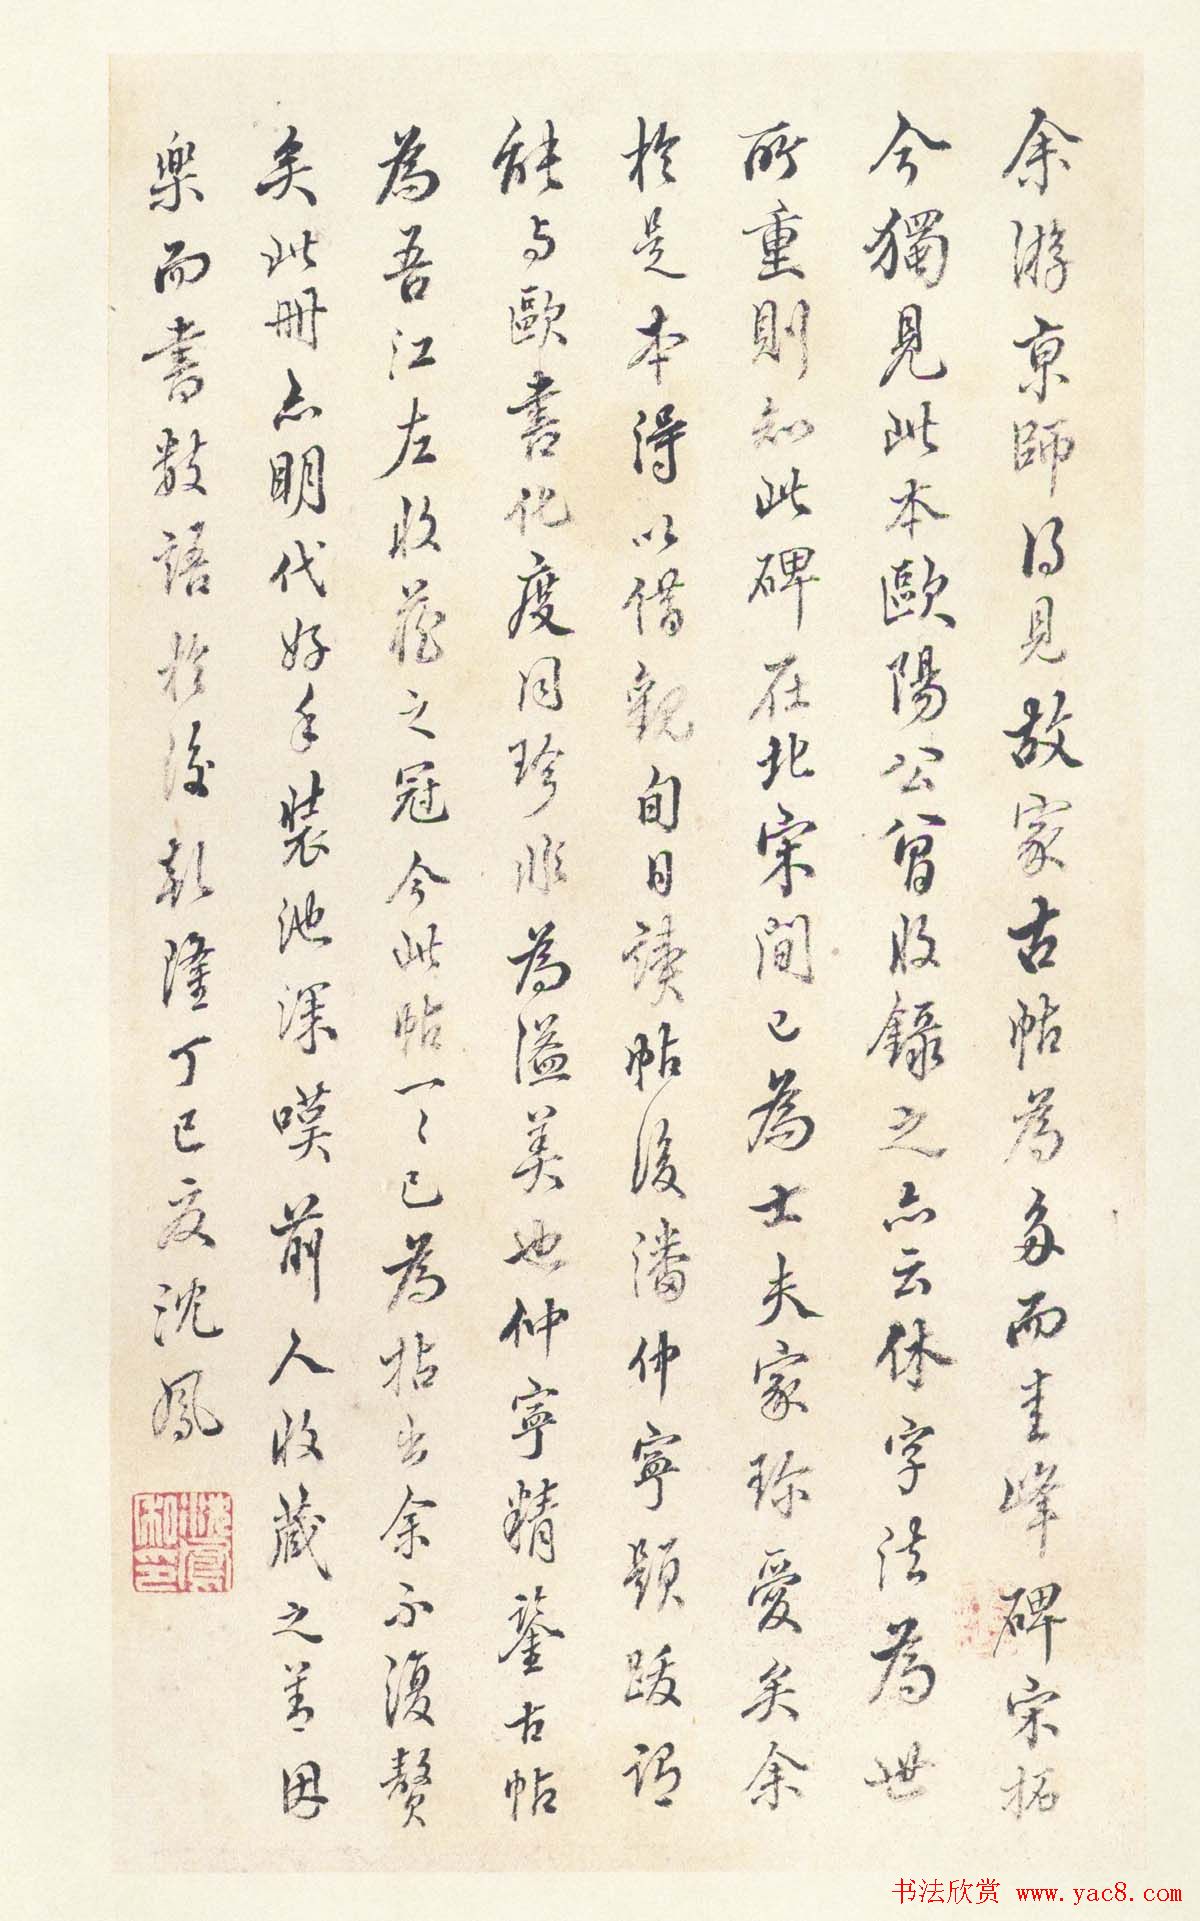 余游京師得見故家古帖為多而圭峰碑宋拓
今獨見此本歐陽公曾收錄之亦云休字法為世
所重則知此碑在北宋間已為士夫家珍愛矣余
於是本得以借觀旬日讀帖後潘仲寧題跋謂
能与歐書化度同珍非為溢美也仲寧精鉴古帖
為吾江左收藏之冠今此帖一〻已為拈出余不復贅
矣此冊亦明代好手裝池深嘆前人收藏之善因
樂而書数語於後乾隆丁巳夏沈鳳
沈鳳私印
书法欣赏 www.yac8.com